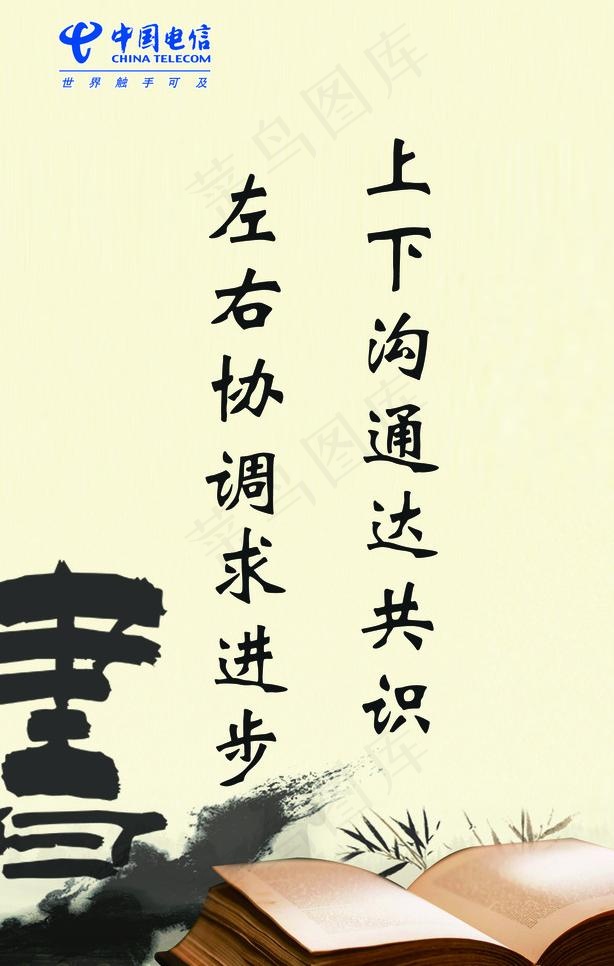 中国电信
CHINA TELECOM
世界触手可及
上下沟通达共识
左右协调求进步
書
菜鸟图库
菜鸟图库
菜鸟图库